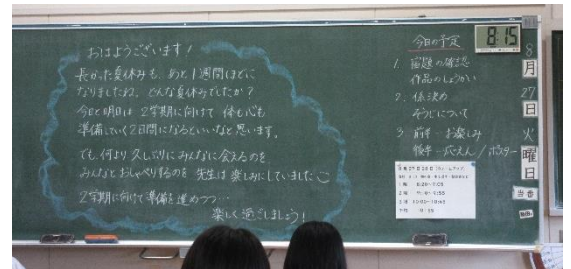 おはようございます!
長かった夏休みも、あと1週間ほどに
なりましたね。どんな夏休みでしたか?
今日と明日は 2学期に向けて 体も心も
準備していく2日間になるといいなと思います。
でも、何より 久しぶりにみんなに会えるのを
みんなとおしゃべりするのを 先生は 楽しみにしていました
2学期に向けて準備を進めつつ…
楽しく過ごしましょう!
今日の予定
1. 宿題の確認
作品のしょうかい
2. 係決め
そうじについて
3 前半…お楽しみ
後半…応えん/ポスター
8:15
8
月
27
日
火
曜
日
当番